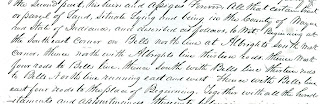 the Second part, his heirs and assigns Forever All that certain tract
or parcel of Land, Situate Lying and being in the County of Wayne
and State of Indiana and described as follows, to wit Beginning at
the South east corner on Bells north line at Albrights South west
corner. Thence north with Albrights line thirteen rods. Thence west
four rods to Bells line. Thence South with Bells line thirteen rods
to Bells North line running east and west Thence with Bells line
east four rods to the place of Beginning. Together with all the